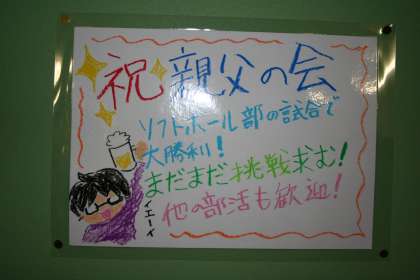 祝親父の会
ソフトボール部の試合で
大勝利！
まだまだ挑戦求む！
他の部活も歓迎！
イエーイ